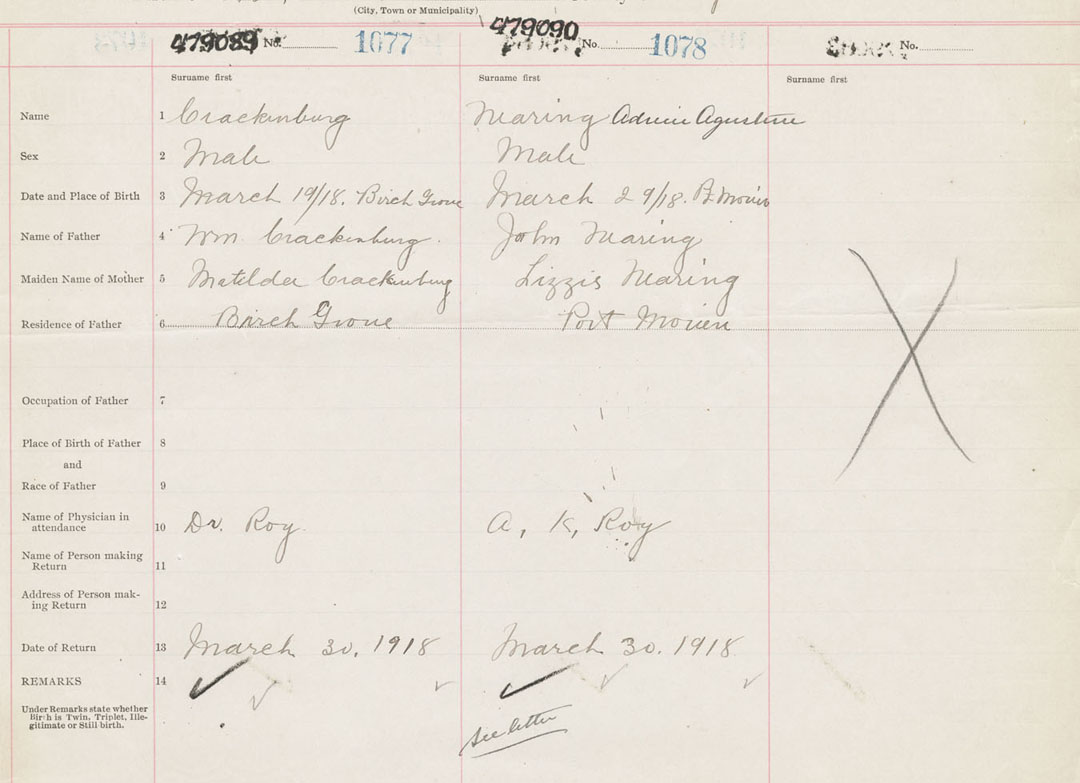 (City, Town or Municipality)
479089 No. 1077 479090 No. 1078 No.
Surname first Surname first Surname first
Name 1 Crackenburg Nearing Agustine
Sex 2 Male Male
Date and Place of Birth 3 March 19/18. Birch Grove March 29/18. P. Morien
Name of Father 4 Wm. Crackenburg. John Nearing
Maiden Name of Mother 5 Matelda Crackenburg Lizzis Nearing
Residence of Father 6 Birch Grove Port Morien
Occupation of Father 7
Place of Birth of Father 8
and
Race of Father 9
Name of Physician in
attendance 10 Dr. Roy. A, K, Roy
Name of Person making
Return 11
Address of Person mak-
ing Return 12
Date of Return 13 March 30, 1918 March 30. 1918
REMARKS 14
Under Remarks state whether
Birth is Twin, Triplet, Ille-
gitimate or Still birth.
see letter